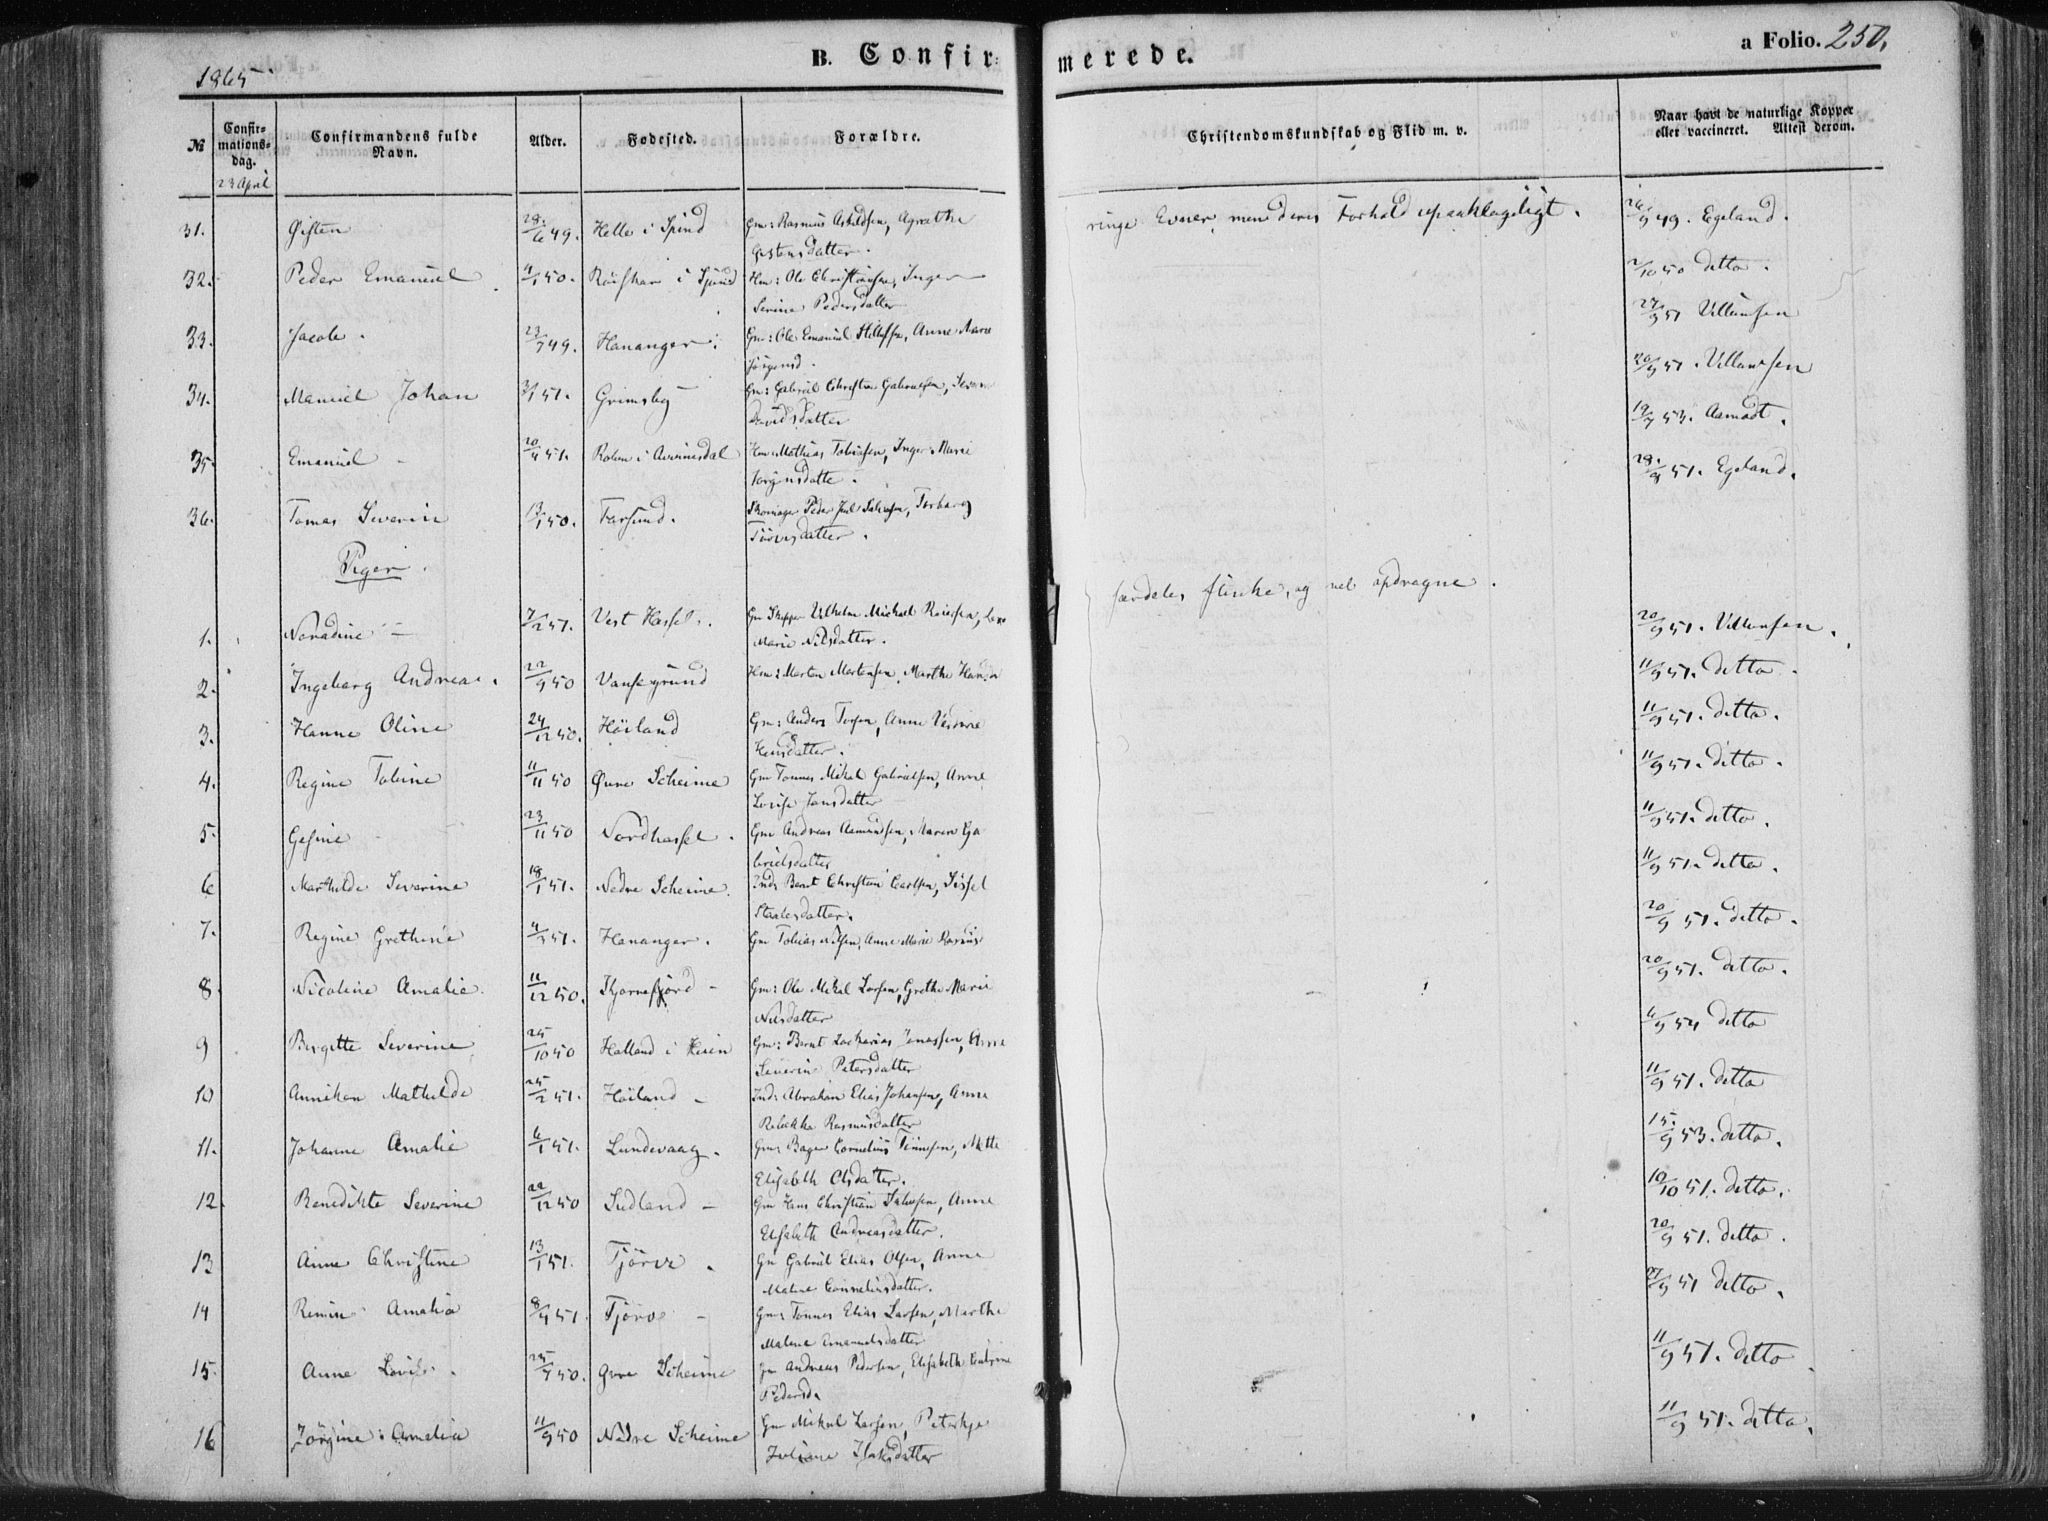 B. Confir-
merede.
a Folio. 250.
1865
№
Confir-
mations-
dag.
Confirmandens fulde
Navn.
Alder.
Fødested.
Forældre.
Christendomskundskab og Flid m. v.
Naar havt de naturlige Kopper
eller vaccineret. Attest derom.
23 April
31. Gisten 28/6 49. Helle i Spind Gm: Rasmus Askildsen, Agnethe
Gistensdatter.
ringe Evner, men deres Forhold upaaklageligt. 49. Egeland.
32. Peder Emanuel 4/1 50. i Spind Hm: Ole Christiansen, Inger
Serine Pedersdatter
2/10 50 ditto.
33. Jacob. 23/7 49. Hananger. Gm: Ole Emanuel Anne Marie
Jörgensd.
27/9 51 Villumsen
34. Manuel Johan 3/1 51. Grimsby Gm: Gabriel Christian Gabrielsen,
Davidsdatter
20/9 51. Villumsen
35. Emanuel 20/4 51. i Qvinesdal Hm: Mathias Tobiasen, Inger Marie
Jörginsdatte.
19/7 53. Aamodt.
36. Tomas Severin 13/1 50. Farsund. Skomager Peder Juel Torborg
28/8 51. Egeland.
Piger.
særdeles flinke, og vel opdragne.
1. Noradine 7/12 51. Vest Hassel. Gm Skipper Vilhelm Michael
Marie Nilsdatter.
20/9 51. Villumsen.
2. Ingeborg Andrea. 22/9 50 Vansegrund Hm: Morten Mortensen, Marthe
11/9 51. ditto.
3. Hanne Oline 24/12 50. Höiland Gm: Anders Anne
11/9 51. ditto.
4. Regine Tobine 11/11 50 Övre Scheime Gm Tönnes Mikal Gabrielsen, Anne
Lovise Jansdatter
11/9 51. ditto.
5. Gesine 23/11 50 Nordhassel. Gm Andreas Aamundsen, Maren Ga
brielsdatter
11/9 51. ditto.
6 Marthilde Severine 18/1 51. Nedre Scheime. Inds Bernt Christian Carlsen, Sissel
Staalesdatter.
11/9 51. ditto.
7. Regine Grethine 4/3 51. Hananger. Gm Tobias Nilsen, Anne Marie
20/9 51. ditto.
8. Nicoline Amalie 11/12 50. Gm: Ole Mikal Larsen, Grethe Marie
Nilsdatter
20/9 51. ditto.
9 Bergitte Severine 25/10 50 Halland i Gm: Bernt Zacharias Jonassen, Anne
Severin Petersdatter
54 ditto
10 Anniken Mathilde 25/2 51. Höiland Ind: Abraham Elias Johansen, Anne
Rebekka Rasmusdatter
11/9 51. ditto
11. Johanne Amalie 6/1 51. Lundevaag. Gm: Bager Cornelius Tönnesen, Mette
Elisabeth Olsdatter.
15/9 53. ditto.
12. Benedikte Severine 22/12 50 Sudland Gm Hans Christian Anne
Elisabeth Andreasdatter.
10/10 51. ditto.
13 Anne Christine 13/1 51. Tjörve. Gm Gabriel Elias Olsen, Anne
Malene Corneliusdatter.
20/9 51. ditto.
14 Amalia 8/4 51. Tjörve Gm: Tönnes Elias Larsen, Marthe
Malene Emanuelsdatter
27/9 51 ditto.
15. Anne Lovise. 25/7 50. Övre Scheime Gm Andreas Pedersen, Elisabeth
Pedersd.
11/9 51. ditto
16 Jörgine Amalia 11/9 50 Nedre Scheime Gm Mikal Larsen,
Juliane Isaksdatter
11/9 51. ditto.